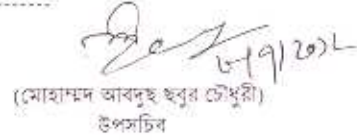 ৮/৭/২০১২
(মোহাম্মদ আবদুছ ছবুর চৌধুরী)
উপসচিব